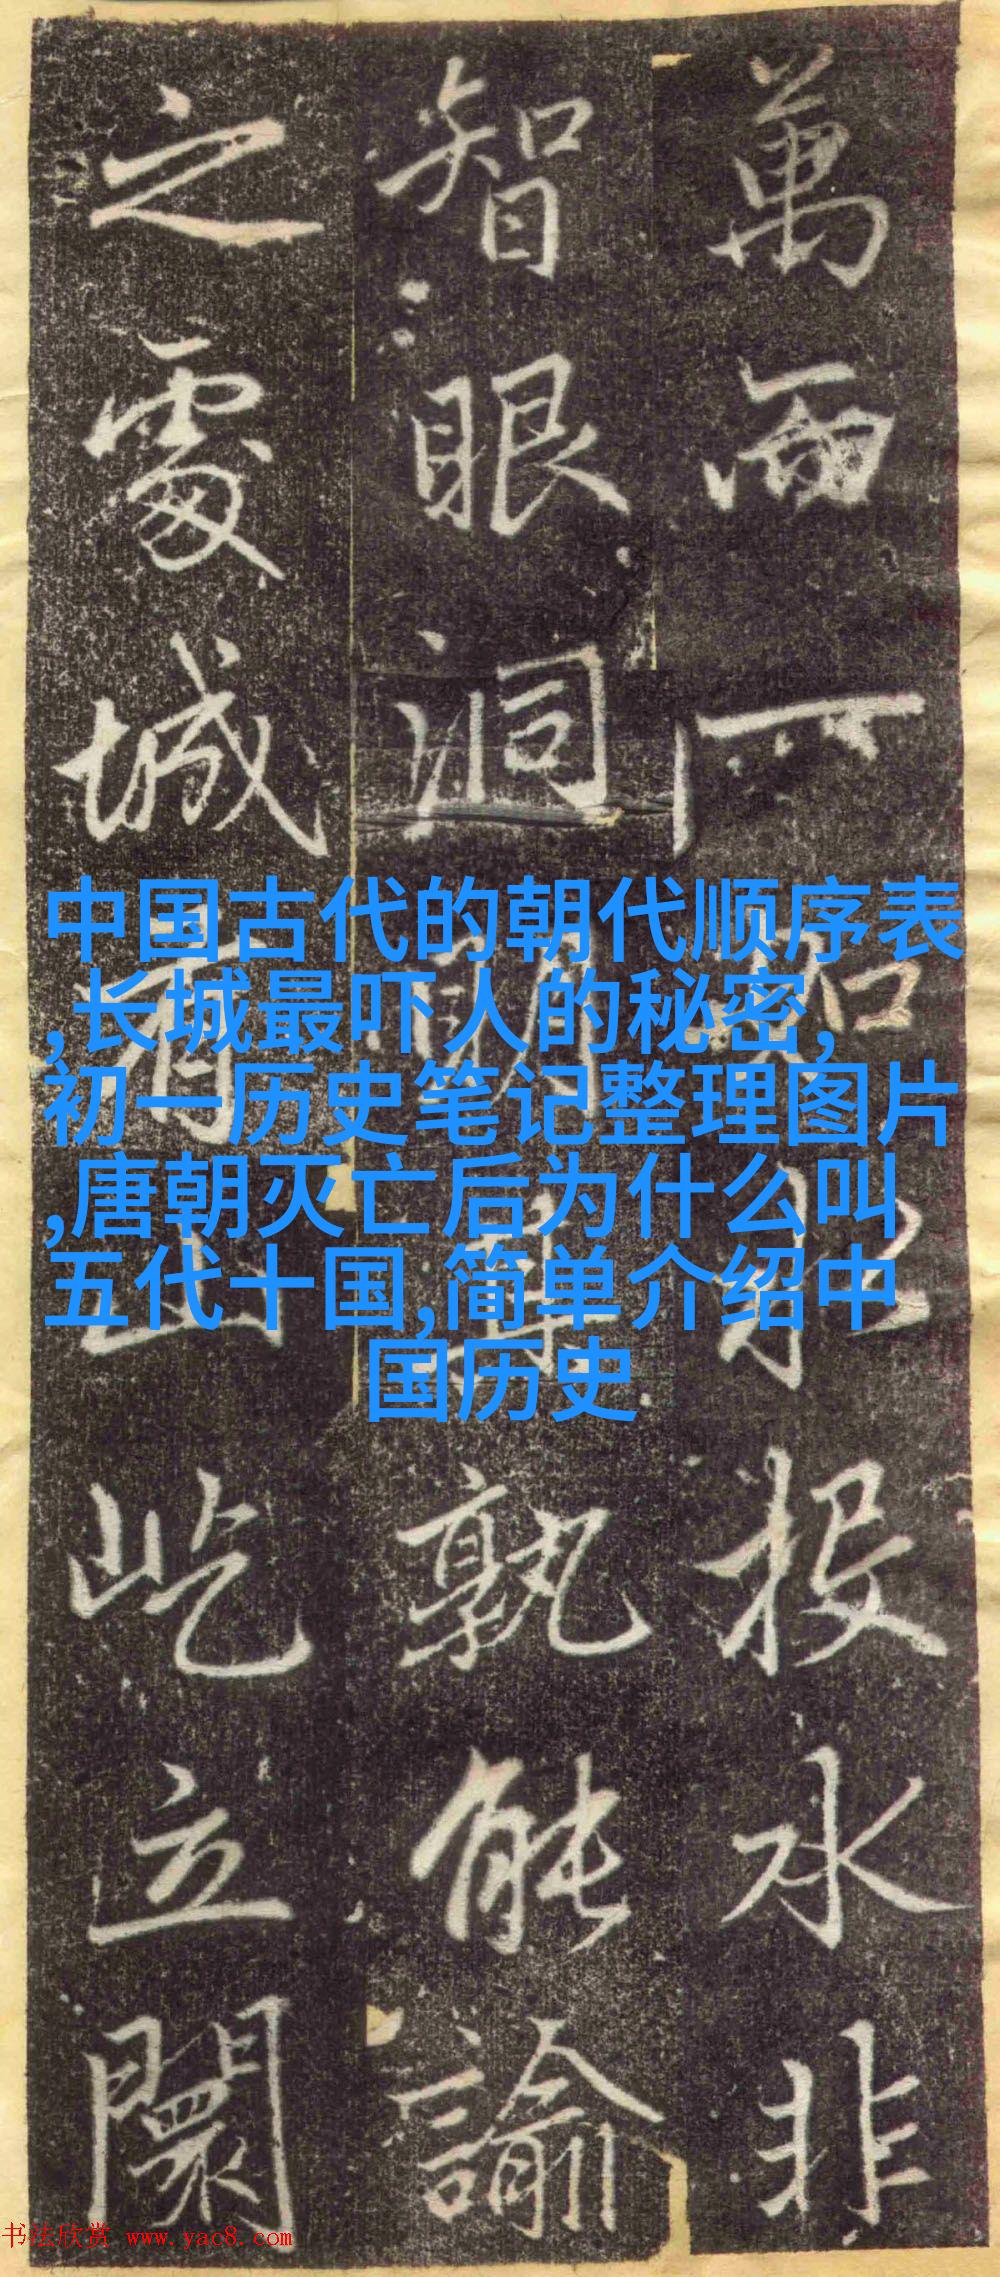 萬而一投水非
智眼洞明其孰能諭
之處城有山屹立闤
中国古代的朝代顺序表
,长城最吓人的秘密,
初一历史笔记整理图片
,唐朝灭亡后为什么叫
五代十国,简单介绍中
国历史
书法欣赏 www.yac8.com